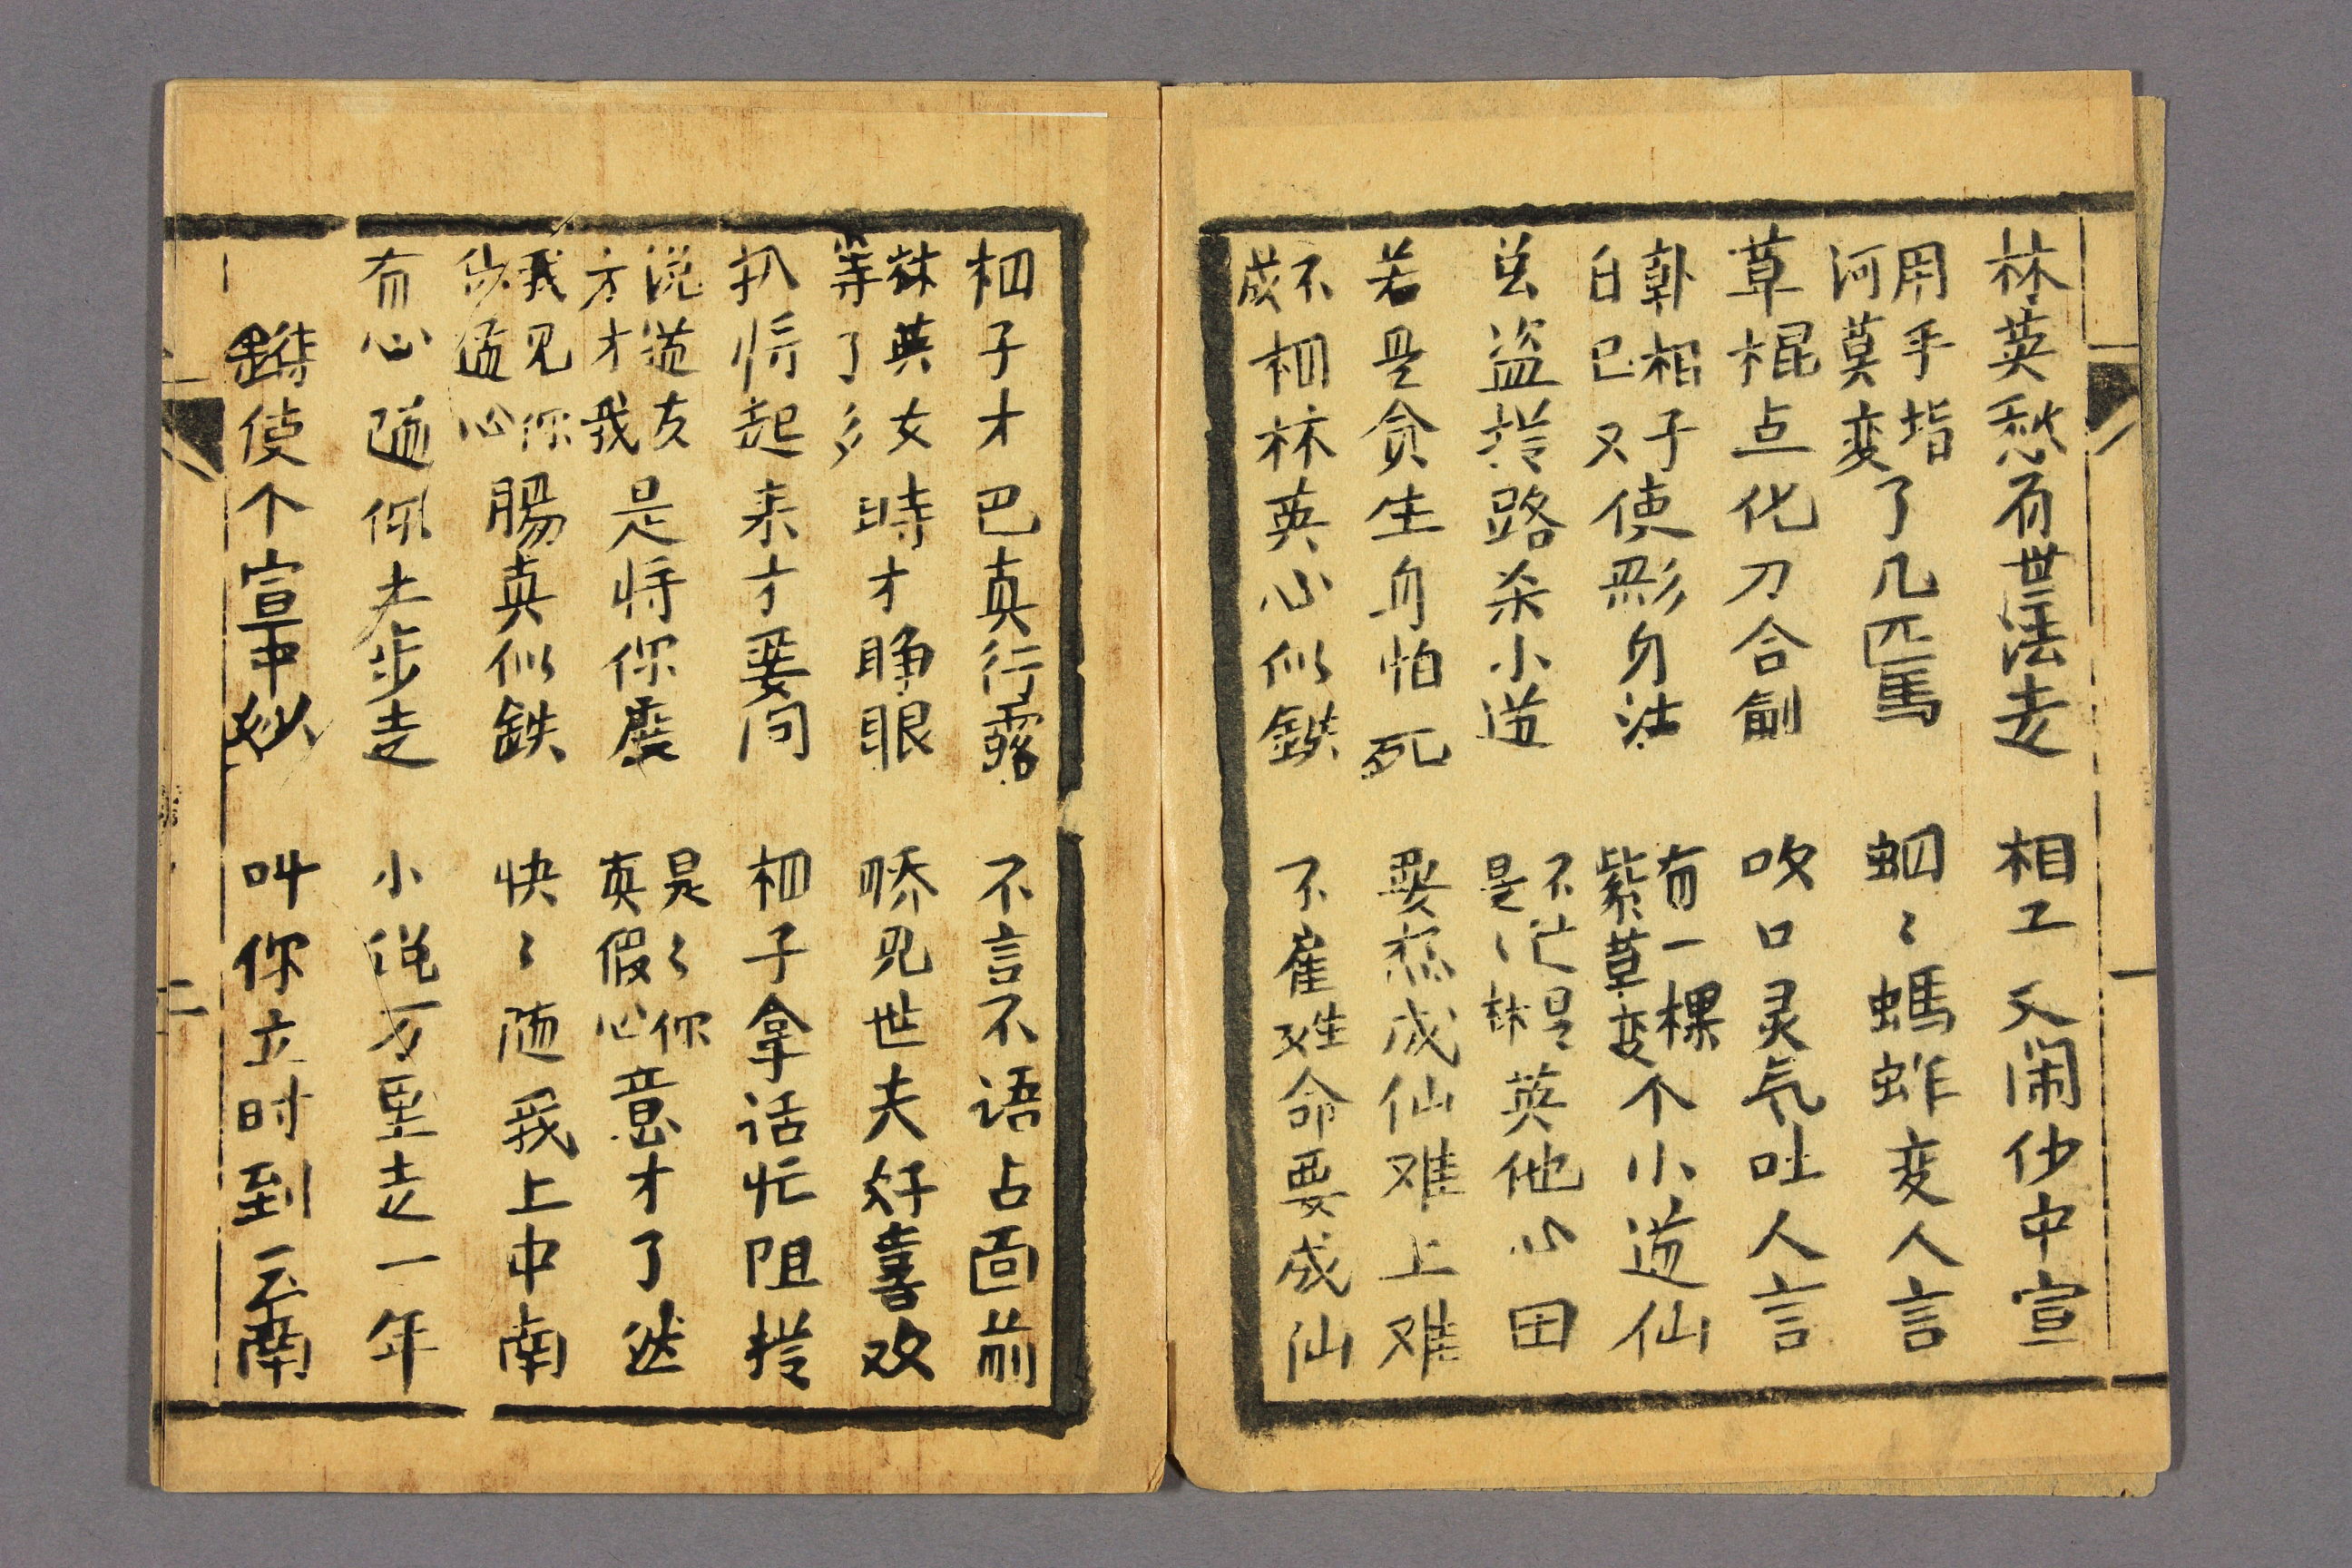 林英愁有世法走 相工又闹仯中宣
用手指河莫変了几匹馬 蛔〻螞蚱变人言
草棍点化刀合劎 吹口灵気吐人言
韩相子白巳又使身法 有一棵紫草变个小道仙
盗路杀小道 不忙是是〻林英他心田
若是贪生身怕死 要想成仙难上难
不成相林英心似鉄 不雇姓命要成仙
相子才巴真行露 不言不语占面前
林英女等了多時才睁眼 見世夫好喜欢
扒将起来才要问 相子拿话忙阻拦
说道友方才我是将你度 是〻你真假心意才了然
我见你仯猛心腸真似鉄 快〻随我上中南
有心随你夫步走 小说万里走一年
使个宣中妙 叫你立时到云南
一
二